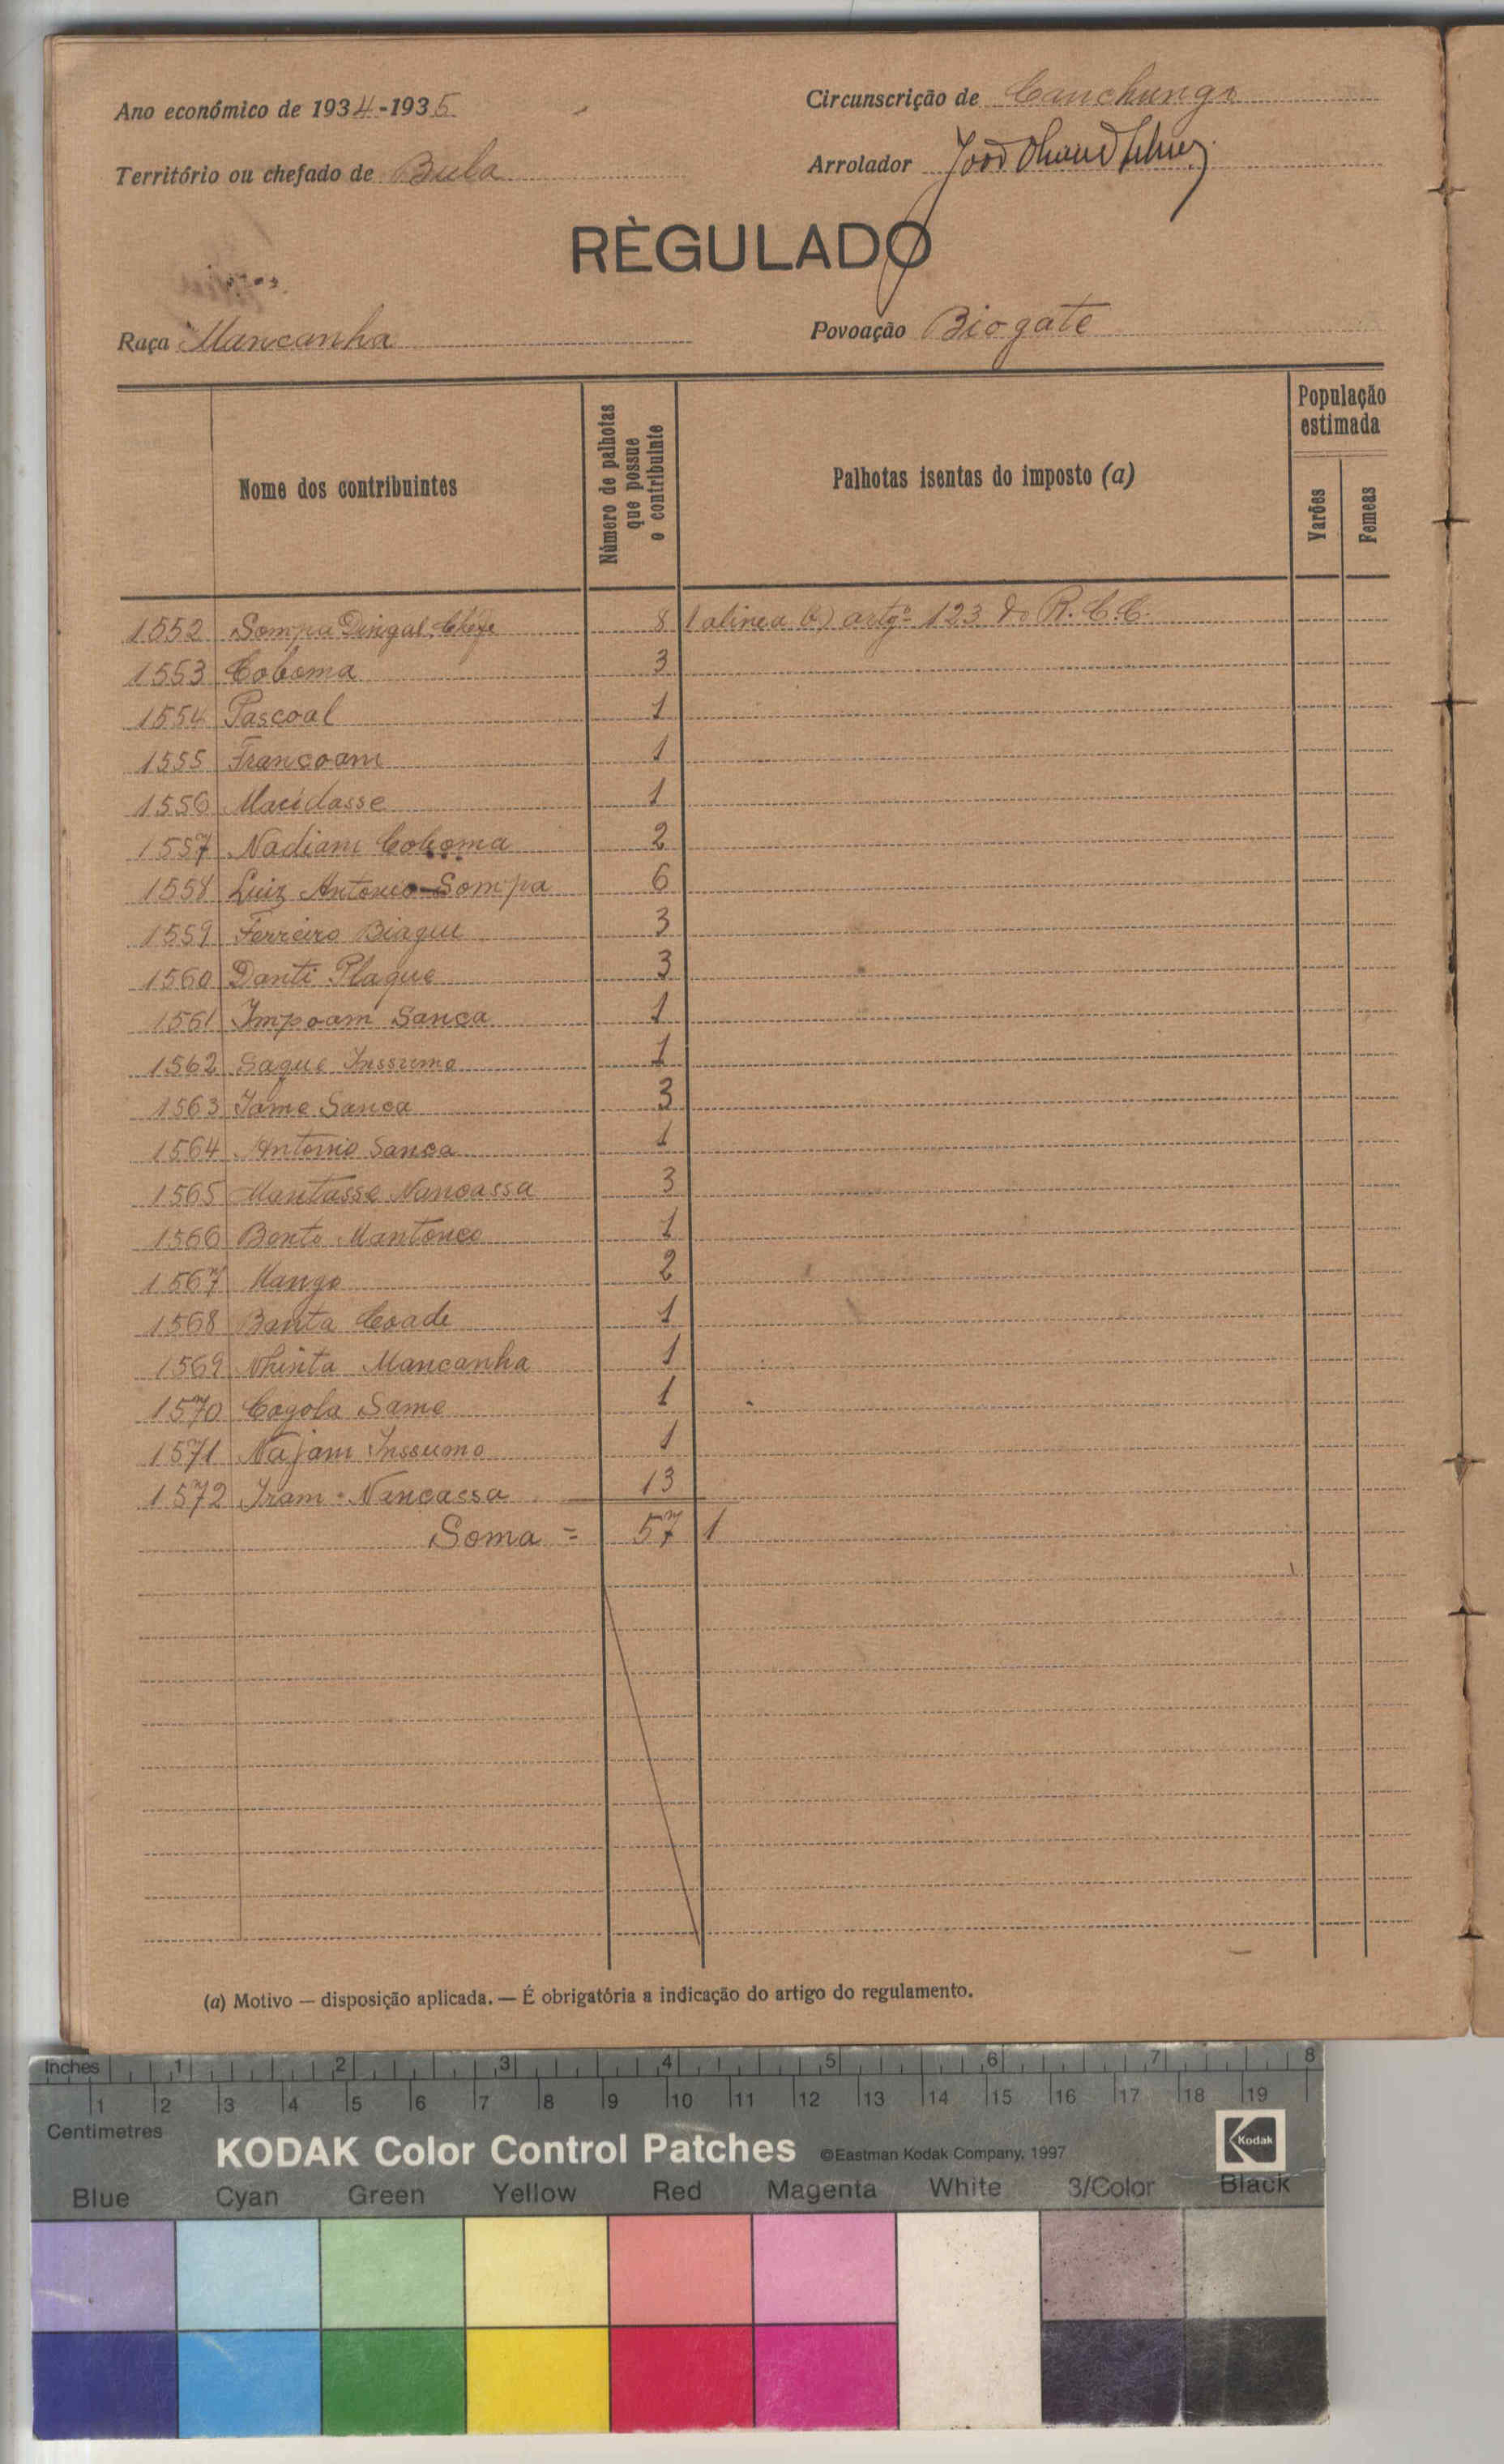 Ano económico de 1934-1935
Circunscrição de Canchungo
Território ou chefado de Bula
Arrolador
RÈGULADO
Raça Mancanha
Povoação Biogate
Nome dos contribuintes
Número de palhotas que possue o contribuinte
Palhotas isentas do imposto (a)
População estimada
Varões
Femeas
1552 Sompa Dingal, Chefe 8 1 alinea b) artgº 123 do R.C.C.
1553 Coboma 3
1554 Pascoal 1
1555 Francoam 1
1556 Macidasse 1
1557 Nadiam Coboma 2
1558 Luiz Antonio Sompa 6
1559 Ferreiro Biague 3
1560 Danti Plaque 3
1561 Impoam Sanca 1
1562 Saque Inssumo 1
1563 Jame Sanca 3
1564 Antonio Sanca 1
1565 Mantasse Nancassa 3
1566 Bento Mantonco 1
1567 Mango 2
1568 Banta Coade 1
1569 Nhinta Mancanha 1
1570 Cagola Same 1
1571 Najam Inssumo 1
1572 Iram - Nancassa 13
Soma = 57 1
(a) Motivo — disposição aplicada. — É obrigatória a indicação do artigo do regulamento.
Inches 1 2 3 4 5 6 7 8
1 2 3 4 5 6 7 8 9 10 11 12 13 14 15 16 17 18 19
Centimetres
KODAK Color Control Patches ©Eastman Kodak Company, 1997 Kodak
Blue Cyan Green Yellow Red Magenta White 3/Color Black